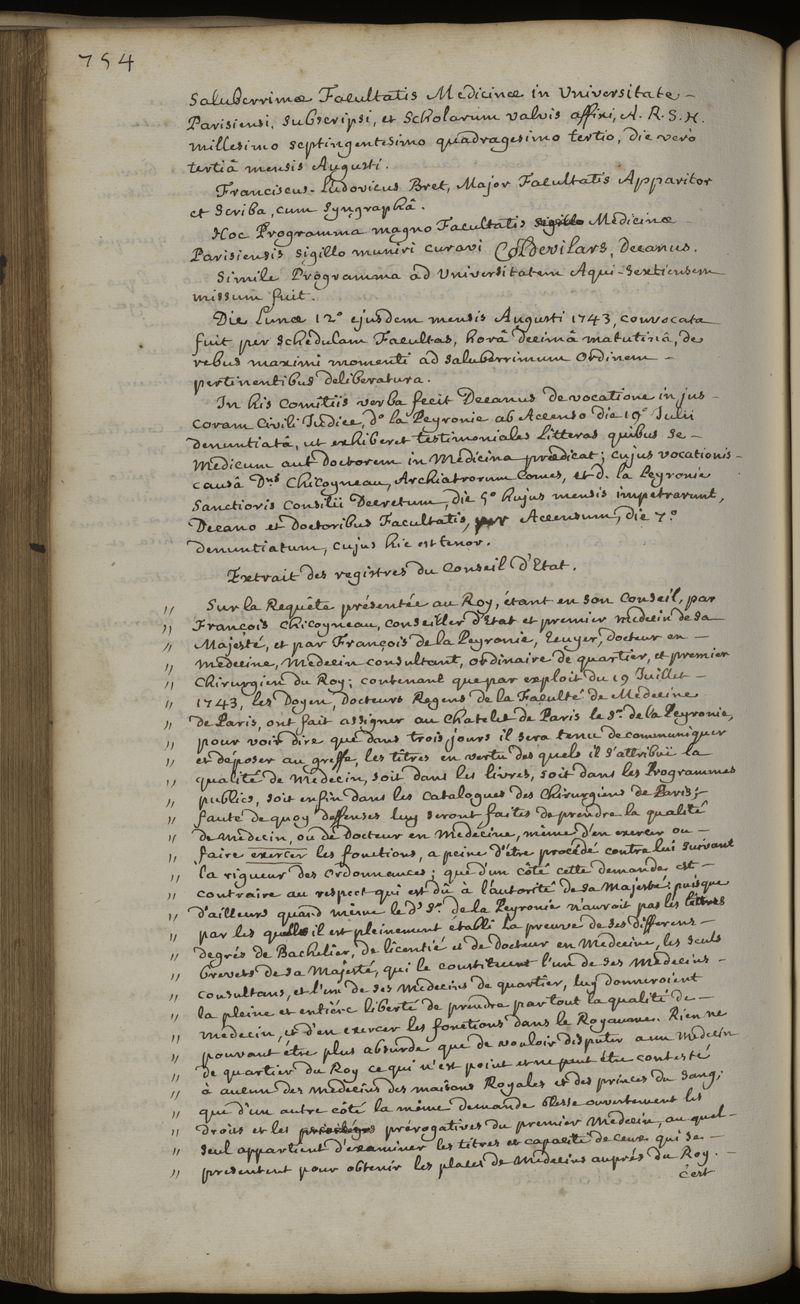 754
Saluberrimæ Facultatis Medicinæ in Universitate –
Parisiensi, subscripsi, et Scholarum valvis affixi, A. R. S. H.
millesimo septingentesimo quadragesimo tertio, die verò
tertiâ mensis Augusti.
Franciscus-Ludovicus Bret, Major Facultatis Apparitor
et Scriba, cum syngraphâ.
Hoc Programma magno Facultatis sigillo Medicinæ
Parisiensis sigillo muniri curavi Col de Vilars, Decanus.
Simile Programma ad Universitatem Aqui-Sextiensem
missum fuit.
Die Lunæ 12º ejusdem mensis Augusti 1743, convocata
fuit per Schedulam Facultas, horâ decimâ matutinâ, de
rebus maximi momenti ad saluberrimum Ordinem –
pertinentibus deliberatura.
In his Comitiis verba fecit Decanus de vocatione in jus –
coram Civili Judice, Dº la Peyronie ab Accenso die 19º Julii
denuntiatâ, ut exhiberet testimoniales Litteras quibus se –
Medicum aut Doctorem in Medicina prædicat; cujus vocationis –
causâ Dnus Chicoyneau, Archiatrorum Comes, et d. la Peyronie
Sanctioris Consilii Decretum, die 5º hujus mensis impetrarunt,
Decano et Doctoribus Facultatis, per Accensum, die 7º
denuntiatum, cujus hic est tenor.
Extrait des registres du Conseil d'Etat.
" Sur la Requête présentée au Roy, étant en son Conseil, par
" François Chicoyneau, Conseiller d'Etat et premier médecin de Sa
" Majesté, et par François de la Peyronie, Ecuyer, Docteur en –
" médecine, Médecin consultant, ordinaire de quartier, et premier
" Chirurgien du Roy; contenant que par exploit du 19 Juillet –
" 1743, les Doyen, Docteurs Regens de la Faculté de Médecine
" de Paris, ont fait assigner au Chatelet de Paris le Sr. de la Peyronie,
" pour voir dire que dans trois jours il sera tenu de communiquer
" et déposer au greffe, les titres en vertu des quels il s'attribuë la
" qualité de Médecin, soit dans les livres, soit dans les Programmes
" publics, soit enfin dans les Catalogues des Chirurgiens de Paris;
" faute de quoy deffenses luy seront faites de prendre la qualité
" de Médecin, ou de Docteur en Médecine, même d'en exercer ou –
" faire exercer les fonctions, a peine d'être procédé contre lui suivant
" la rigueur des Ordonnances; que d'un côté cette demande est –
" contraire au respect qui est dû à l'autorité de Sa Majesté; puisque
" d'ailleurs quand même le d. Sr. de la Peyronie n'auroit pas les lettres
" par les quelles il est pleinement établi la preuve de ses differens –
" degrés de Bachelier, de licentié et de Docteur en Médecine, les seuls
" brevets de Sa Majesté, qui le constituent l'un de ses Médecins –
" Consultans, et l'un de ses Médecins de quartier, luy donneroient
" la pleine et entière liberté de prendre par tout la qualité de –
" médecin, et d'en exercer les fonctions dans le Royaume. Rien ne
" pouvant être plus absurde que de vouloir disputer a un Médecin
" de quartier du Roy ce qui n'est point et ne peut être contesté
" à aucun des Médecins des maisons Royales et des princes du Sang;
" que d'un autre côté la même demande blesse ouvertement les
" droits et les privilèges prérogatives du premier Médecin, au quel –
" seul appartient d'examiner les titres et capacité de ceux qui se –
" presentent pour obtenir les places de Médecins auprés du Roy. –
c'est